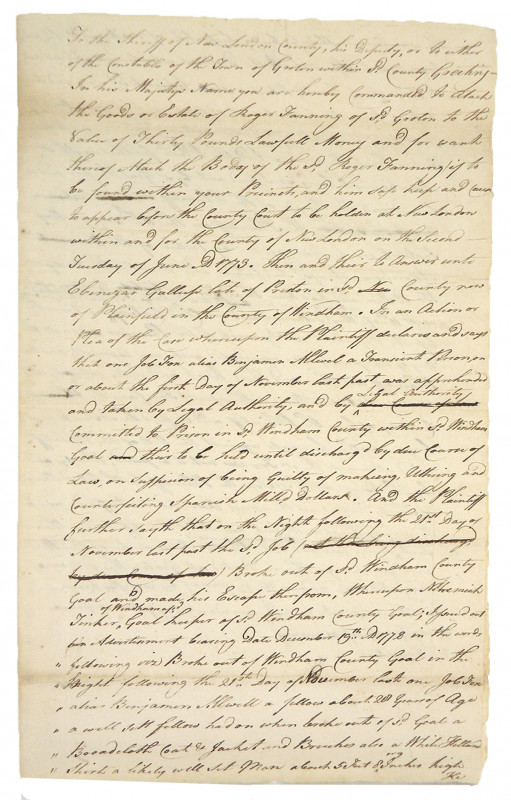 To the Sheriff of New London County, his Deputy, or to either
of the Constables of the Town of Groton within Sd. County Greeting—
In his Majestys Name you are hereby Commanded to Attach
the Goods or Estate of Roger Fanning of Sd. Groton to the
Value of Thirty Pounds Lawfull Money and for want
thereof Attach the Body of the Sd. Roger Fanning if to
be found within your Precincts, and him safe keep and cause
to appear before the County Court to be holden at New London
within and for the County of New London on the Second—
Tuesday of June AD 1773. Then and their to Answer unto
Ebenezar Gallup late of Preston in Sd. New County now
of Plainfield in the County of Windham. In an Action or
Plea of the Case whereupon the Plaintiff declares and says
that one Job Fon alias Benjamen Allwel a Transient Person, on
or about the first Day of November last past, was apprehended
and taken by Legal Authority, and by Legal Authority
Committed to Prison in Sd. Windham County within Sd. Windham
Goal and their to be held until dischargd by due Course of
Law, on Suspision of being Guilty of makeing, Uttering and
Counterfeiting Spanish Mill'd Dollars. And the Plaintiff
further sayth that on the Night following the 21st Day of
November last past the Sd. Job (not being dischargd
by due Course of Law) Broke out of Sd. Windham County
Goal and made his Escape therefrom, Whereupon Nehemiah
Tinker, of Windham afsd Goal keeper of Sd. Windham County Goal, Issued out
an Advertisement bearing Date December 19th AD 1772 in the words
" following viz Broke out of Windham County Goal in the
" Night following the 21st Day of November last one Job Fon
" alias Benjamen Allwell a fellow about 28 Years of Age
" a well sett fellow had on when broke out of Sd. Goal a
" Broadcloth Coat & Jacket and Breeches also a White Holland
" Shirt a likely well set Man about 5 feet 8 Inches high
He